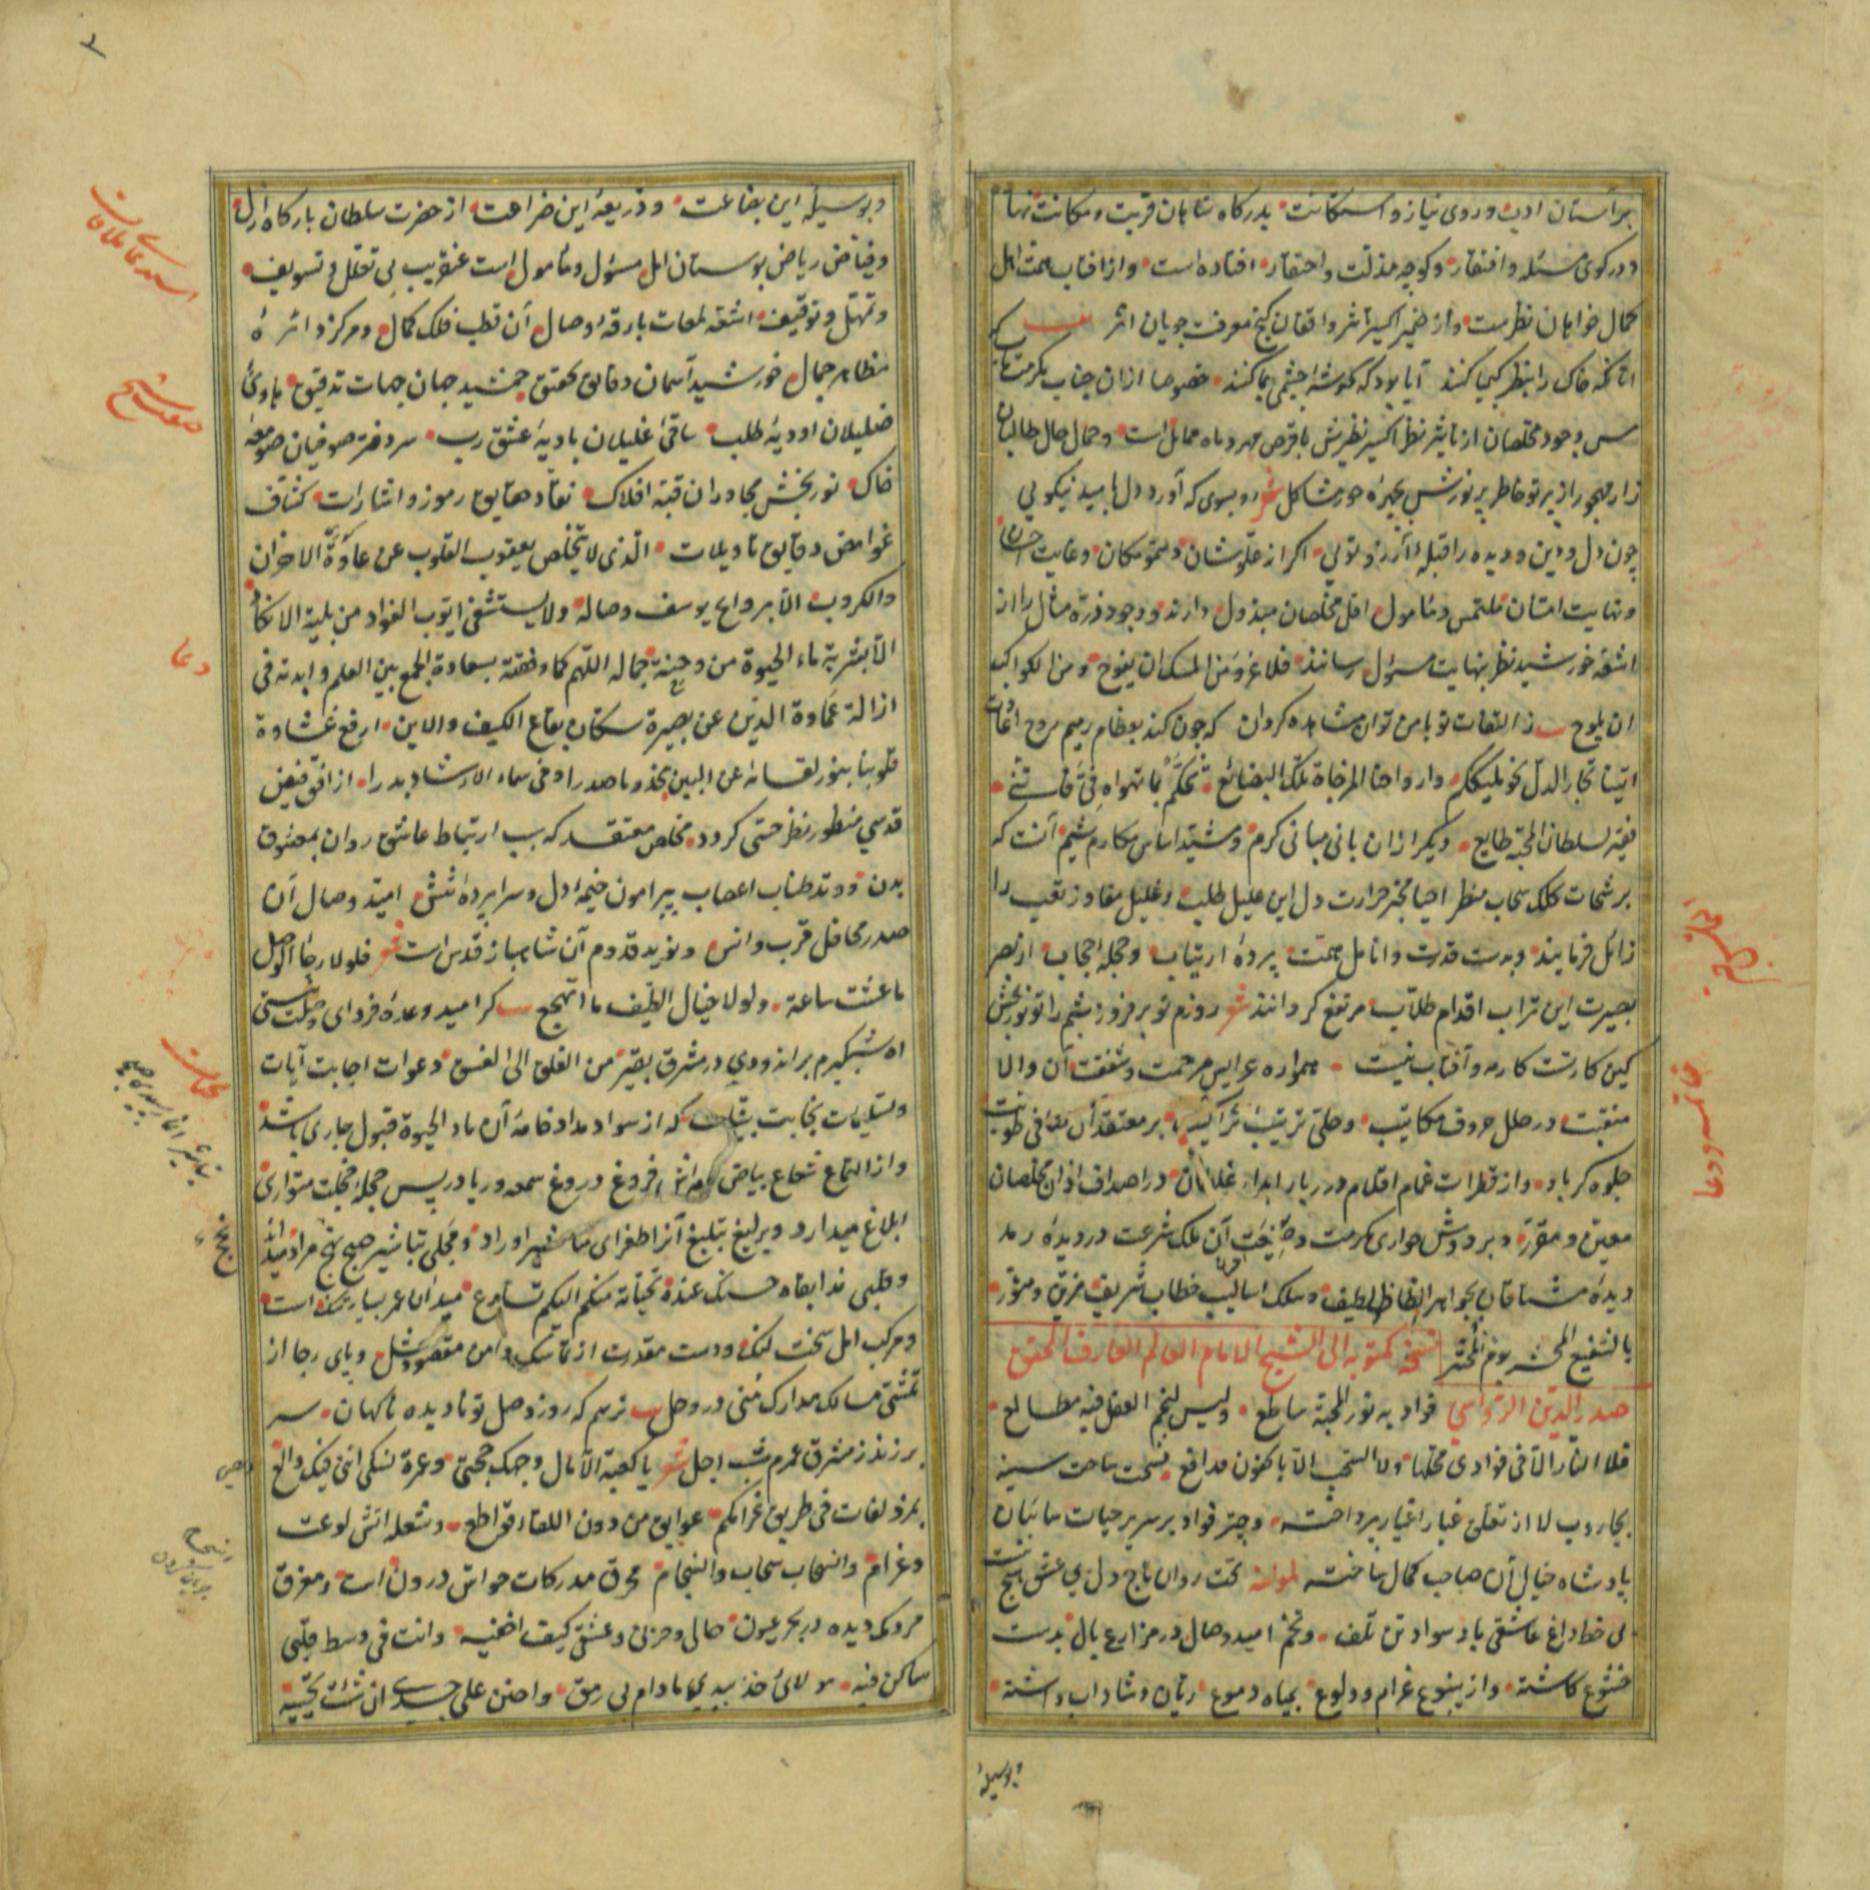 بر آستان ادب و روی نیاز و استکانت بدرگاه شاهان قربت و مکانت نهاده
و در کوی مسئله و افتقار و کوچه مذلت و احتقار افتاده است و از آفتاب همت اهل
کمال خواهان نظرست و از ضمیر اکسیر تأثیر واقفان گنج معرفت جویان اثر
آنانکه خاک را بنظر کیمیا کنند آیا بود که گوشه چشمی بما کنند خصوصا ازان جناب مکرمت مآب که
مس وجود مخلصان از تأثیر نظر اکسیر نظیرش با قرص مهر و ماه مماثل است و جمال حال طالبان
زار مهجور از پرتو خاطر پر نورش بچهره حور مشاکل شعر رو بسوی که آورد دل بامید نیکویی
چون دل و دین و دیده را قبله آرزو تویی اگر از علو شان و سمو مکان و غایت احسان
و نهایت امتنان ملتمس و مأمول اقل مخلصان مبذول دارند و وجود ذره مثال را از
اشعه خورشید نظر بنهایت مسؤل رسانند فلا غرو من المسک ان یفوح و من الکواکب
ان یلوح ز التفات تو با من توان مشاهده کردن که چون کند بعظام رمیم روح اعادت
اتینا تجار الذل نحو ملیککم و ارواحنا المزجاة تلک البضائع تحکم بما تهواه فی فاننی
فقیر لسلطان المحبة طایع دیگر ازان بانی مبانی کرم و مشید اساس مکارم شیم آنست که
برشحات کلک سحاب مطر احیا مخبر حرارت دل این علیل طلب و غلیل مفاوز تعب را
زائل فرمایند و بدست قدرت و انامل همت پرده ارتیاب و حجله حجاب از نظر
بصیرت این تراب اقدام طلاب مرتفع گردانند شعر روزم تو برفروز شبم را تو نور بخش
کین کار تست کار مه و آفتاب نیست همواره عرایس مرحمت و شفقت آن والا
منقبت در حلل حروف مکاتیب و حلی ترتیب تراکیب بر معتقد آن صافی طویت
جلوه گر باد و از قطرات غمام اقلام درر بار ابدار در اصداف اذان مخلصان
معین و مقرر و بر دوش حواری مکرمت و آن ملک شرعت در دیده رمد
دیده مشتاقان بجواهر الفاظ لطیف و سلک اسالیب خطاب شریف مزین و منور
بالشفیع المحشر یوم المحشر نسخه مکتوبه الی الشیخ الامام العالم العارف المحقق
صدر الدین الرواسی فؤاد به نور المحبة ساطع ولیس لنجم العقل فیه مطالع
فلا النار الا فی فؤادی محلها ولا السحب الا یا کنون مدافع فسحت ساحت سینه
بجاروب لا از تعلق غبار اغیار پرداخته و چتر فؤاد بر سریر حیات سائبان
پادشاه خیال آن صاحب کمال ساخته لمؤلفه تخت روان تاج دل بی عشق هیچ نیست
بی خط داغ عاشقی باد سواد تن تلف و تخم امید وصال در مزارع بال بدست
خشوع کاشته و از ینبوع غرام و ولوع بمیاه دموع ریان و شاداب داشته
و بوسیله
و بوسیله این بضاعت و ذریعه این ضراعت از حضرت سلطان بارگاه ازل
و فیاض ریاض بوستان امل مسؤل و مأمول است عنقریب بی تعلل و تسویف
و تمهل و توقیف اشعه لمعات بارقه وصال آن قطب فلک کمال و مرکز دائره
مظاهر جمال خورشید آسمان دقایق تحقیق جمشید جهان جهات تدقیق هادی
ضلیلان اودیه طلب ساقی غلیلان بادیه عشق رب سردفتر صوفیان صومعه
خاک نوربخش مجاوران قبه افلاک نقاد حقایق رموز و اشارات کشاف
غوامض دقایق تاویلات الذی لا یتخلص یعقوب القلوب عن الاحزان
والکروب الا بروایح یوسف وصاله ولا یستشفی ایوب الفؤاد من بلیة الانکاد
الا بشربة ماء الحیوة من وجنة جماله اللهم کما وفقته بسعادة الجمع بین العلم و ایدته فی
ازالة غماوة الدین عن بصیرة سکان بقاع الکیف والاین ارفع غشاوة
قلوبنا بنور لقائه عن البین صدراه فی سماء الارشاد بدرا از افق فیض
قدسی منظور نظر حسی گردد مخلص معتقد که سبب ارتباط عاشق روان بمعشوق
بدن و وتد طناب اعصاب پیرامون خیمه دل و سراپرده شش امید وصال آن
صدر محافل قرب و انس و نوید قدوم آن شاهباز قدس است شعر فلولا رجاء الوصل
ما عشت ساعة ولولا خیال الطیف ما اتهجع گر امید وعده فردای وصلت نیستی
آه شبگیرم برآندودی در مشرق بقیر من الفلق الی الغسق دعوات اجابت آیات
و تسلیمات نجابت بینات که از سواد مداد خامه آن ماء الحیوة قبول جاری باشد
و از التماع شعاع بیاض فروغ دروغ سمعه و ریا در پس حجله خجلت متواری
ابلاغ میدارد و یرلیغ تبلیغ آنرا طغرای مناشیر اوراد و مجلی تباشیر صبح نجح مراد میداند
و قلبی مذ ابقاه حسنک عنده تحیاته منکم الیکم تسارع میدان عمر بیارتنگ است
و مرکب امل سخت لنگ و دست مقدرت از تماسک دامن مقصود شل و پای رجا از
تمشی مسالک مدارک منی در وحل ترسم که روز وصل تو نادیده ناگهان سر
برزند ز مشرق عمرم شب اجل شعر یا کعبة الآمال وجهک حجتی وعمرة نسکی اننی فیک والع
بمزدلفات فی طریق غرامکم عوایق من دون اللقاء قواطع و شعله آتش لوعت
و غرام و التهاب سحاب و انسجام محرق مدرکات حواس درون است و مغرق
مردمک دیده در بحر عیون حالی و حزنی و عشقی کیف اخفیه وانت فی وسط قلبی
ساکن فیه مولای خذ بیدی مادام لی رمق واحنن علی جسدی ان شئت تحییه
استدعای ملاقات
صفت شیخ
دعا
خاتمه و دعا